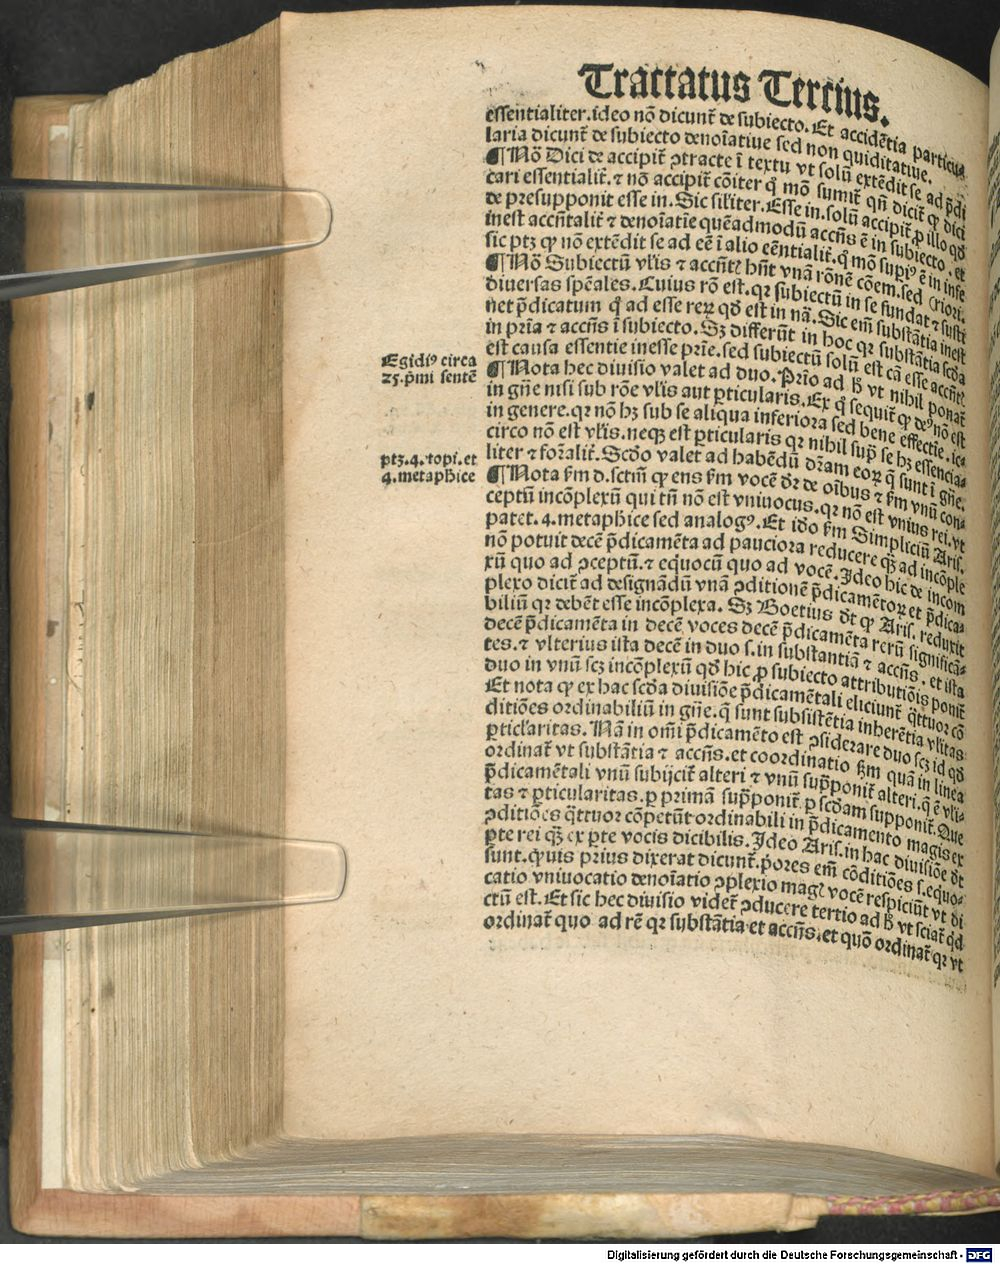 Tractatus Tercius.
essentialiter.ideo nõ dicunt̃ de subiecto. Et accidẽtia particu
laria dicunt̃ de subiecto denoĩatiue sed non quiditatiue.
¶ Nõ Dici de accipit̃ ꝯtracte ĩ textu vt solũ extẽdit se ad p̃di
cari essentialit̃. ⁊ nõ accipit̃ cõiter q̃ mõ sumit̃ qñ dicit̃ ꝙ dici
de presupponit esse in. Sic sil̃iter. Esse in. solũ accipit̃ ꝑ illo qd̃
inest accñtalit̃ ⁊ denoĩatiẽ quẽadmodũ accñs ẽ in subiecto. et
sic ptꝫ ꝙ nõ extẽdit se ad eẽ ĩ alio eẽntialit̃. q̃ mõ supiꝰ ẽ in infe
¶ Nõ Subiectũ vl̃is ⁊ accñtꝭ hñt vnã rõnẽ cõem. sed (riori.
diuersas spẽales. Cuius rõ est. qꝛ subiectũ in se fundat ⁊ susti
net p̃dicatum q̃ ad esse reꝝ qd̃ est in nã. Sic em̃ substãtia inest
in pr̃ia ⁊ accñs ĩ subiecto. Sꝫ differũt in hoc qꝛ substãtia scd̃a
est causa essentie inesse pr̃ie. sed subiectũ solũ est cã esse accñtꝭ
¶ Nota hec diuisio valet ad duo. Pr̃io ad ꝧ vt nihil ponat̃
in gñe nisi sub rõe vl̃is aut ꝑticularis. Ex q̃ sequit̃ ꝙ deꝰ nõ est
in genere. qꝛ nõ hꝫ sub se aliqua inferiora sed bene effectiẽ. ic-
circo nõ est vl̃is. neqꝫ est ꝑticularis qꝛ nihil sup̃ se hꝫ essencia-
liter ⁊ for̃alit̃. Scd̃o valet ad habẽdũ dr̃am eoꝝ q̃ sunt ĩ gñe.
¶ Nota ẜm d. sctm̃ ꝙ ens ẜm vocẽ dr̃ de oĩbus ⁊ ẜm vnũ con-
ceptũ incõplexũ qui tñ nõ est vniuocus. qꝛ nõ est vnius rei. vt
patet. 4. metaph̃ice sed analogꝰ. Et iõo ẜm Simpliciũ Aris.
nõ potuit decẽ p̃dicamẽta ad pauciora reducere qꝫ ad incõple
xũ quo ad ꝯceptũ. ⁊ equocũ quo ad vocẽ. Ideo hic de incom
plexo dicit̃ ad designãdũ vnã ꝯditionẽ p̃dicamẽtoꝝ et p̃dica-
biliũ qꝛ debẽt esse incõplexa. Sꝫ Boetius dt̃ ꝙ Aris. reduxit
decẽ p̃dicamẽta in decẽ voces decẽ p̃dicamẽta rerũ significã-
tes. ⁊ vlterius ista decẽ in duo s. in substantiã ⁊ accñs. et ista
duo in vnũ scꝫ incõplexũ qd̃ hic ꝓ subiecto attributiõis ponit̃
Et nota ꝙ ex hac scd̃a diuisiõe p̃dicamẽtali eliciunt̃ q̃ttuor cõ
ditiões ordinabiliũ in gñe. q̃ sunt subsistẽtia inherẽtia vl̃itas
ꝑticl̃aritas. Nã in om̃i p̃dicamẽto est ꝯsiderare duo scꝫ id qd̃
ordinat̃ vt substãtia ⁊ accñs. et coordinatio ẜm quã in linea
p̃dicamẽtali vnũ subijcit̃ alteri ⁊ vnũ sup̃ponit̃ alteri. q̃ ẽ vl̃i-
tas ⁊ ꝑticularitas. ꝑ primã sup̃ponit̃ ꝑ scd̃am supponit̃. Que
ꝯditiões q̃ttuor cõpetũt ordinabili in p̃dicamento magis ex
ꝑte rei qꝫ ex ꝑte vocis dicibilis. Ideo Aris. in hac diuisiõe dt̃
sunt. q̃uis prius dixerat dicunt̃. p̃ores em̃ cõditiões s. equo-
catio vniuocatio denoĩatio ꝯplexio magꝭ vocẽ respiciũt vt di
ctũ est. Et sic hec diuisio videt̃ ꝯducere tertio ad ꝧ vt sciat̃ qd̃
ordinat̃ quo ad rẽ qꝛ substãtia et accñs. et quõ ordinat̃ qꝛ vt
Egidiꝰ circa
25. p̃mi sentẽ
ptꝫ. 4. topi. et
4. metaph̃ice
Digitalisierung gefördert durch die Deutsche Forschungsgemeinschaft - DFG